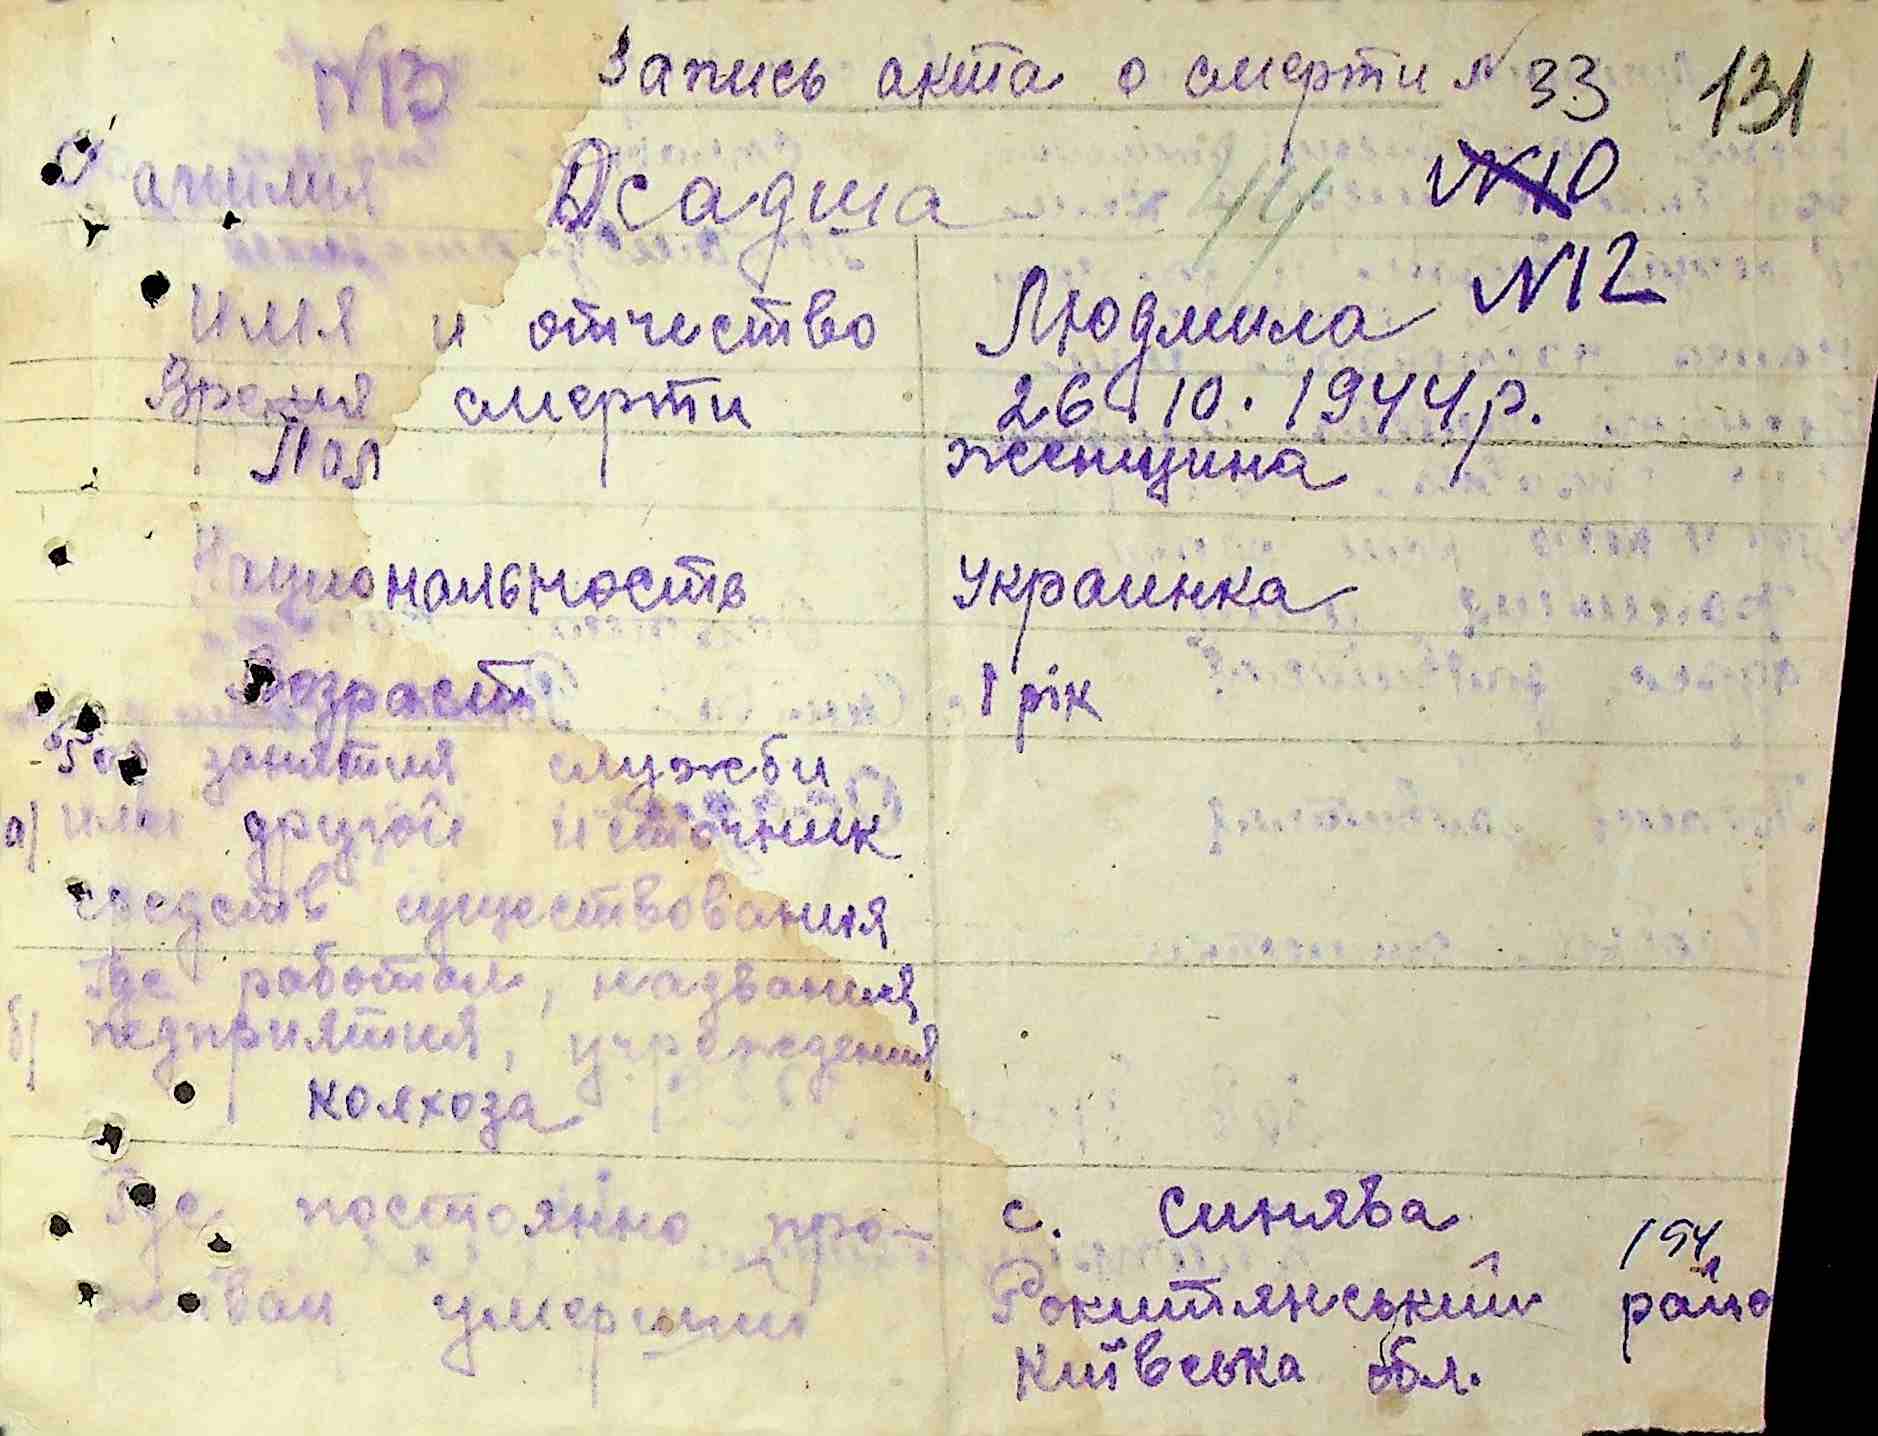 N13 Запись акта о смерти N 33 131
Фамилия Осадша 44 N10
N12
Имя и отчество Людмила
Время смерти 26.10.1944р.
Пол женщина
Национальность Украинка
Возраст 1 рік
Род занятия служби
а) или другой источник
средств существования
Где работал, названия
б) педприятия, учреждения
колхоза
Где постоянно про- с. Синява
живал умерший Рокитянський райо
194
Київська обл.